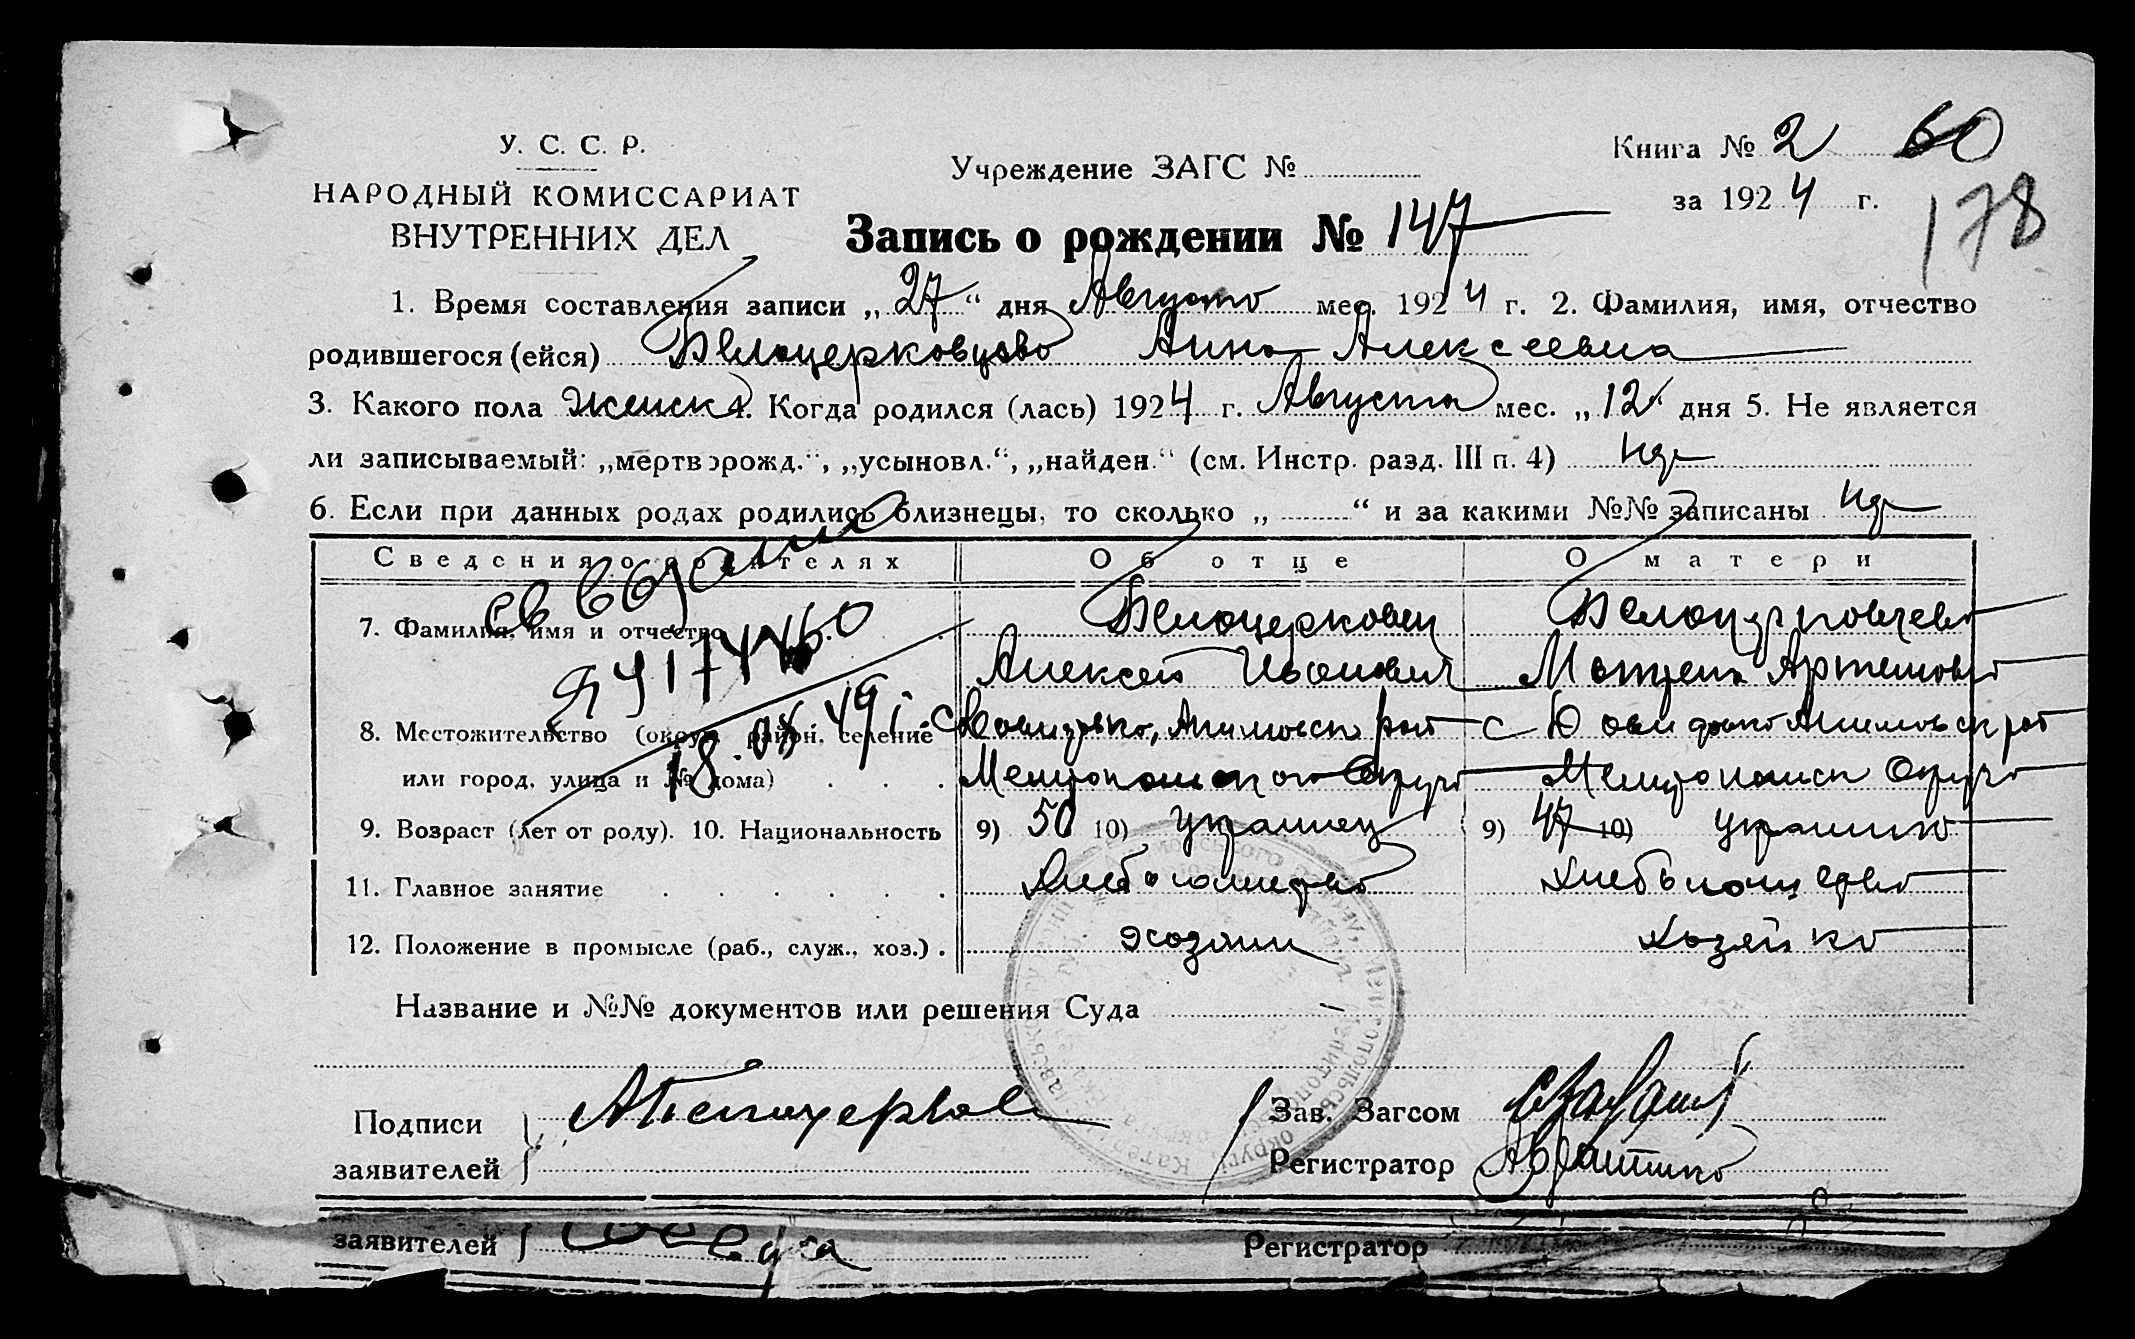 У. С. С. Р.
НАРОДНЫЙ КОМИССАРИАТ
ВНУТРЕННИХ ДЕЛ
Учреждение ЗАГС №
Книга № 2 60
за 1924 г.
178
Запись о рождении № 147
1. Время составления записи „27“ дня Августа мес. 1924 г. 2. Фамилия, имя, отчество
родившегося (ейся) Белоцерковцева Анна Алексеевна
3. Какого пола женск 4. Когда родился (лась) 1924 г. Августа мес. „12“ дня 5. Не является
ли записываемый: „мертворожд.“, „усыновл.“, „найден.“ (см. Инстр. разд. III п. 4) нет
6. Если при данных родах родились близнецы, то сколько „ “ и за какими №№ записаны нет
Сведения о родителях Об отце О матери
7. Фамилия, имя и отчество Белоцерковец Белоцерковцева
Алексей Иванович Матрена Артемовна
8. Местожительство (округ, район, селение
или город, улица и № дома) Мелитопольского Округа Мелитопольск Округа
18.08.49 г.
9. Возраст (лет от роду). 10. Национальность 9) 50 10) украинец 9) 47 10) украинка
11. Главное занятие Хлебопашество Хлебопашество
12. Положение в промысле (раб., служ., хоз.) хозяин хозяйка
Название и №№ документов или решения Суда —
Подписи
заявителей
А Белоцерков
Зав. Загсом
Регистратор
заявителей
Регистратор